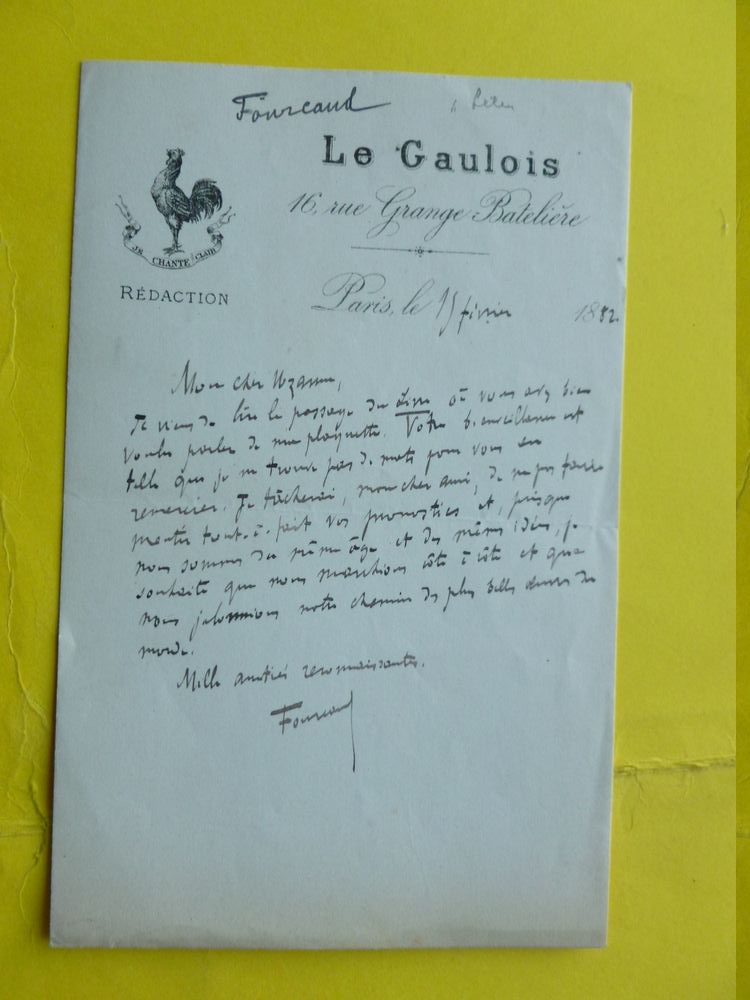 Fourcaud
Le Gaulois
16, rue Grange Batelière
JE CHANTE CLAIR
RÉDACTION
Paris, le 15 février 1882
Mon cher Uzanne,
Je viens de lire le passage du Livre où vous avez bien
voulu parler de ma plaquette. Votre bienveillance est
telle que je ne trouve pas de mots pour vous en
remercier. Je tâcherai, mon cher ami, de ne pas faire
mentir tout-à-fait vos pronostics et, puisque
nous sommes du même âge et des mêmes idées, je
souhaite que nous marchions côte à côte et que
nous jalonnions notre chemin des plus belles œuvres du
monde.
Mille amitiés reconnaissantes.
Fourcaud